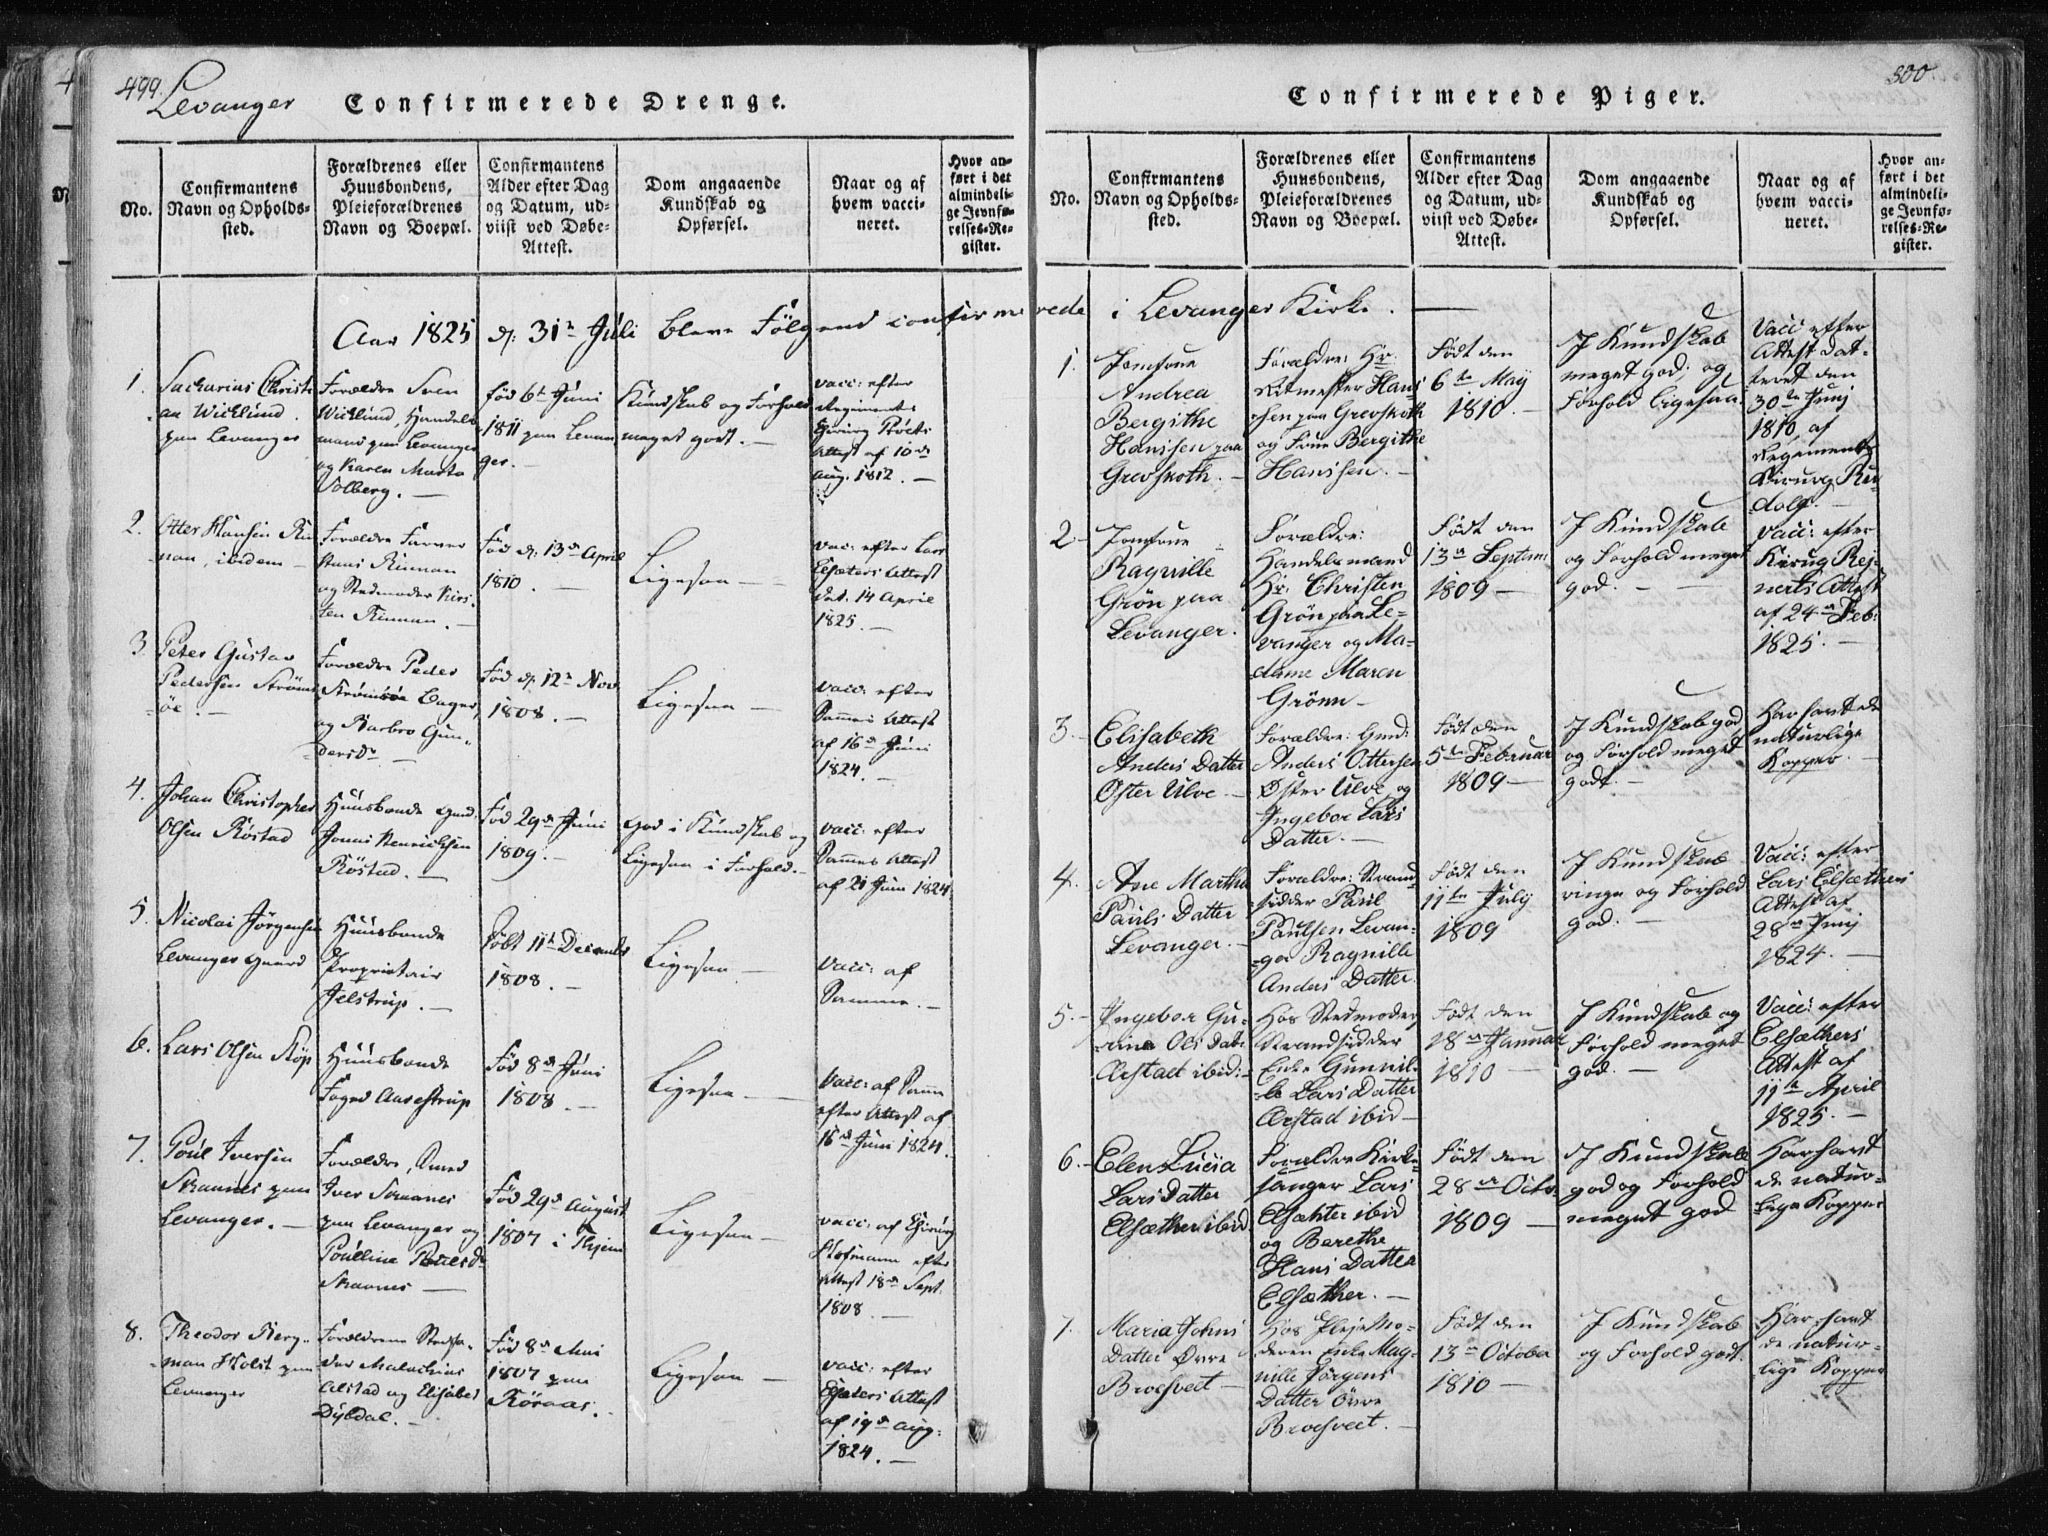 499.
Levanger
Confirmerede Drenge.
No.
Confirmantens
Navn og Opholds-
sted.
Forældrenes eller
Huusbondens,
Pleieforældrenes
Navn og Boepæl.
Confirmantens
Alder efter Dag
og Datum, ud-
viist ved Døbe-
Attest.
Dom angaaende
Kundskab og
Opførsel.
Naar og af
hvem vacci-
neret.
Hvor an-
ført i det
almindeli-
ge Jevnfø-
relses-Re-
gister.
Aar 1825 d: 31te Juli bleve Følgend confirmerede i Levanger Kirke.
1.
Sacharias Christi
an Wicklund.
paa Levanger
Forældre Sven
Wicklund, Handels
mand paa Levanger
og Karen Marta
Volberg.
fød 6te Juni
1811 paa Levan
ger.
Kundskab og Forhold
meget godt.
vacc: efter
Regiments
Attest af 10de
Aug. 1812.
2.
Otter Hansen Rin
nan, ibidem
Forældre Farver
Hans Rinnan
og Stedmoder Kirs-
ten Rinnan.
Fød d: 13de April
1810.
Ligesaa
vac: efter Lars
Elsæters Attest
dat. 14 April
1825.
3.
Peter Gustav
Pedersen Strøms
øe.
Forældre Peder
Strømsøe Bager,
og Barbro Gun-
dersdr
Fød d: 12te Nov.
1808.
Ligesaa
vacc: efter
Sammes Attest
af 16de Juni
1824.
4.
Johan Christopher
Olsen Røstad
Huusbonde Gmd.
Jonas Henrichsen
Røstad.
Fød 29de Juni
1809.
God i Kundskab og
Ligesaa i Forhold.
vacc: efter
Sammes Attest
af 21 Juni 1824
5.
Nicolai Jørgensen
Levanger Gaard
Huusbonde
Proprietair
Jelstrup.
Født 11te December
1808.
Ligesaa
vacc: af
Samme.
6.
Lars Olsen Køp
Huusbonde
Foged Aarestrup
Fød 8de Juni
1808.
Ligesaa
vacc: af Samme
efter Attest af
16de Juni 1824.
7.
Poul Iversen
Skaanes paa
Levanger.
Forældre, Smed
Iver Skaanes
paa Levanger og
Poulline Poulsdr
Skaanes
Fød 29de August
1807 i
Ligesaa
vacc: af Chirurg
Hofmann efter
Attest 18de Sept.
1808.
8.
Theodor Berg-
man Holst paa
Levanger
Forældrene
Malachias
Alstad og Elisabet
Dyldal.
Fød 8de Mai
1807 paa
Røraas.
Ligesaa
vacc: efter
Elsæters Attest
af 19de Aug:
1824.
500.
Confirmerede Piger.
No.
Confirmantens
Navn og Opholds-
sted.
Forældrenes eller
Huusbondens,
Pleieforældrenes
Navn og Boepæl.
Confirmantens
Alder efter Dag
og Datum, ud-
viist ved Døbe-
Attest.
Dom angaaende
Kundskab og
Opførsel.
Naar og af
hvem vacci-
neret.
Hvor an-
ført i det
almindeli-
ge Jevnfø-
relses-Re-
gister.
1.
Jomfrue
Andrea
Bergithe
Hanssen paa
Grevskoth.
Forældre: Hr:
Ritmester Hans
sen paa Grevskoth
og Frue Bergithe
Hanssen.
Født den
6te May
1810.
I Kundskab
meget god, og
Forhold ligesaa.
Vacc: efter
Attest dat-
teret den
30te Junj
1810, af
Regiments
Kirurg Ru-
dolf.
2.
Jomfrue
Ragnille
Grøn paa
Levanger.
Forældre:
Handelsmand
Hr: Christen
Grøn paa Le-
vanger og Ma-
dame Maren
Grønn
Født den
13de Septem:
1809
I Kundskab
og Forhold meget
god.
Vacc: efter
Kirurg Rej-
nerts Attest
af 24de Feb:
1825.
3.
Elisabeth
Anders Datter
Øster Ulve
Forældre: Gmd:
Anders Ottersen
Øster Ulve, og
Ingebor Lars
Datter.
Født den
5te Februar
1809
I Kundskab god
og Forhold meget
godt.
Har havt de
naturlige
Kopper.
4.
Ane Martha
Pauls Datter
Levanger.
Forældre: Strand-
sidder Paul
Paulsen Levan-
ger Ragnille
Anders Datter.
Født den
11te July
1809
I Kundskab
ringe og Forhold
god.
Vacc: efter
Lars Elsæthers
Attest af
28de Junj
1824.
5.
Ingebor Gu-
Ols Datr
Ørstad ibid:
Hos Stedmoder
Strandsidder
Enke Gunnil-
le Lars Datter
Ørstad ibid
Født den
18de Januar
1810
I Kundskab og
Forhold meget
god.
Vacc: efter
Elsæthers
Attest af
11te April
1825.
6.
Elen Lucia
Lars Datter
Elsæther ibid
Forældre Kirke-
sanger Lars
Elsæhter ibid
og Berethe
Hans Datter
Elsæther.
Født den
28de Octo.
1809
I Kundskab
god og Forhold
meget god
Har havt
de natur-
lige Kopper
7.
Maria Johns
Datter Øvre
Broesveet
Hos Plejemo-
deren Enke Mag-
nille Jørgens
Datter Øvre
Broesveet.
Født den
13de October
1810
I Kundskab
og Forhold godt.
Har havt
de natur-
lige Kopper